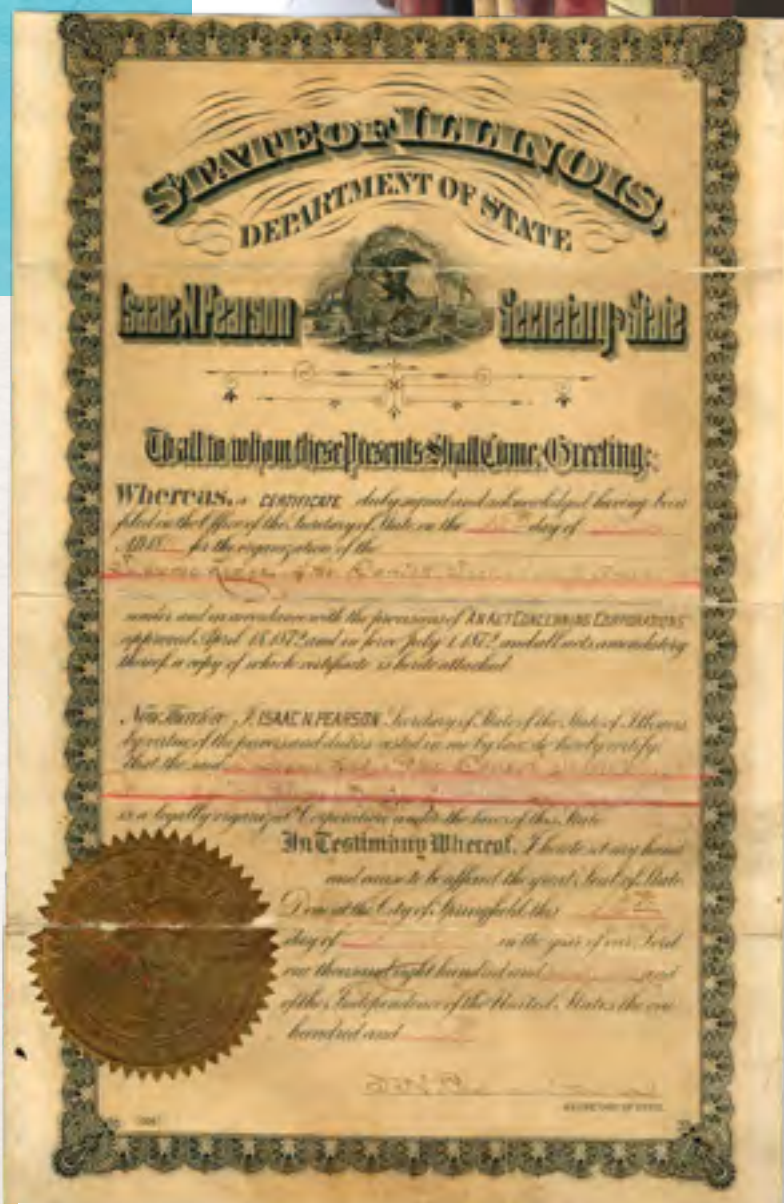 STATE OF ILLINOIS,
DEPARTMENT OF STATE
Isaac N. Pearson Secretary of State
To all to whom these Presents Shall Come, Greeting:
Whereas, a CERTIFICATE duly signed and acknowledged having been
filed in the Office of the Secretary of State on the day of
A.D. 18 for the organization of the
of the
under and in accordance with the provisions of AN ACT CONCERNING CORPORATIONS
approved April 18, 1872 and in force July 1, 1872 and all acts amendatory
thereof, a copy of which certificate is hereto attached
Now Therefore I, ISAAC N. PEARSON Secretary of State of the State of Illinois
by virtue of the powers and duties vested in me by law, do hereby certify
that the said
is a legally organized Corporation under the laws of this State
In Testimony Whereof, I hereto set my hand
and cause to be affixed the great Seal of State
Done at the City of Springfield this
day of in the year of our Lord
one thousand eight hundred and and
of the Independence of the United States the one
hundred and
SECRETARY OF STATE